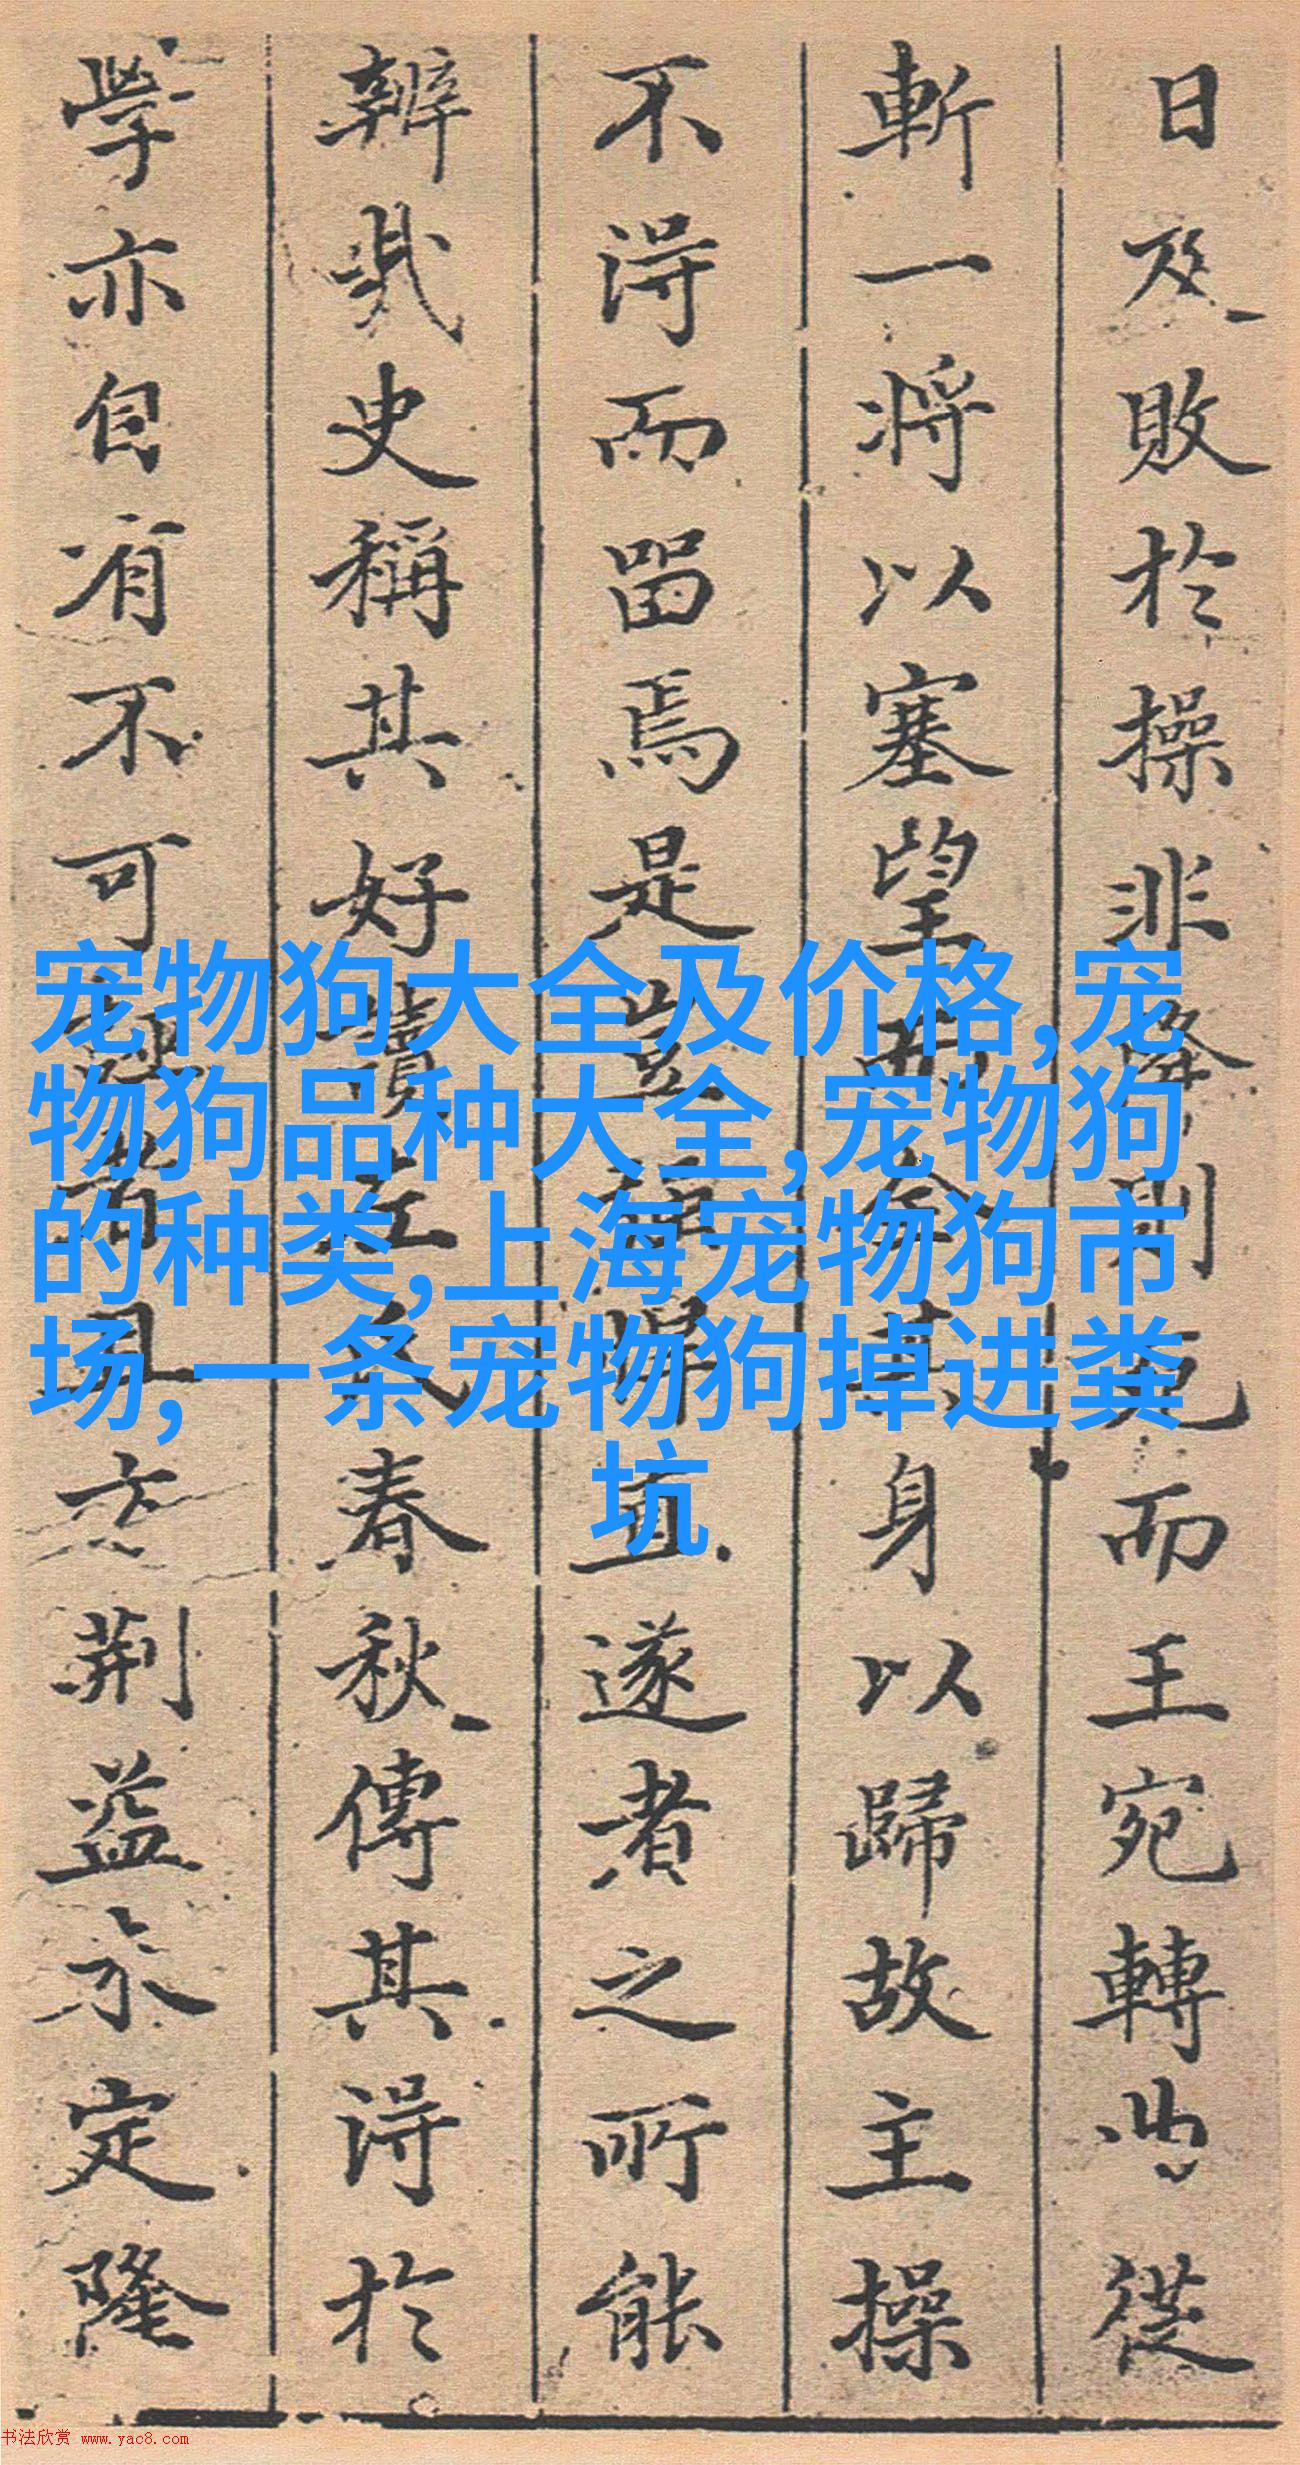 日及敗於操非降則而王宛轉曲從
斬一將以塞望而全其身以歸故主操
不得而留焉是豈悍直遂者之所能
辨哉史稱其好讀左氏春秋傳其得於
學亦自有不可者且方荊益未定隆
宠物狗大全及价格,宠
物狗品种大全,宠物狗
的种类,上海宠物狗市
场,一条宠物狗掉进粪
坑
书法欣赏 www.yac8.com